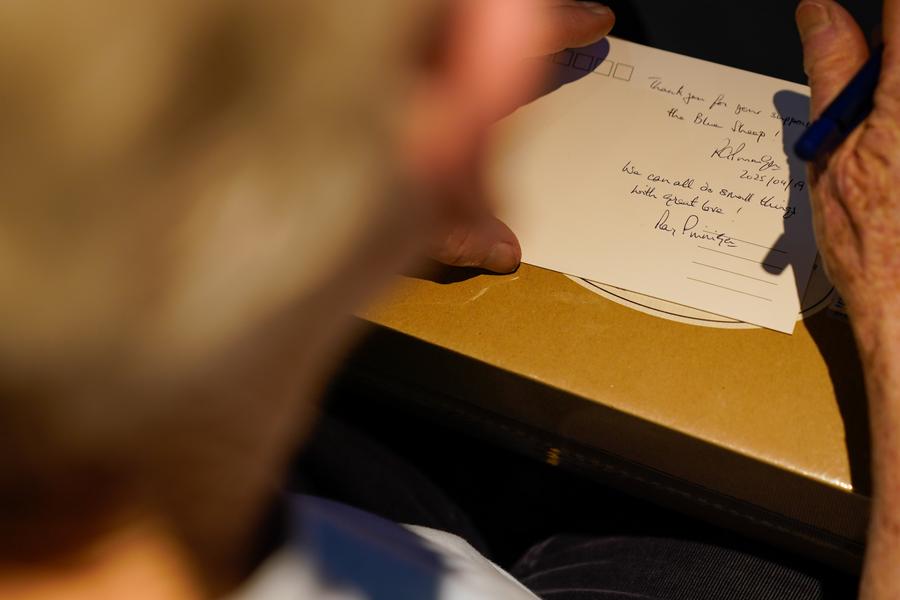 Thank you for your support
the Blue Sheep!
2025/04/19
We can all do small things
with great love!
Ray